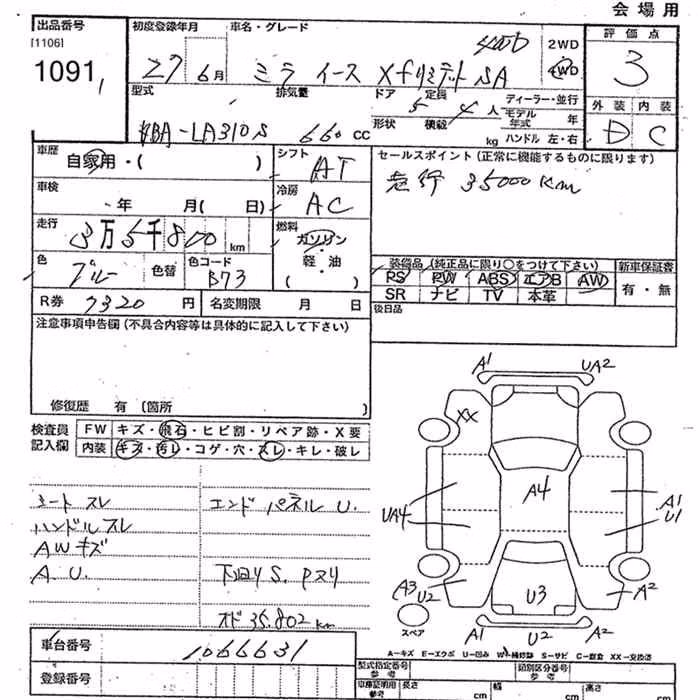 会場用
出品番号
[1106]
1091
初度登録年月
27 6月
車名・グレード
ミラ イース Xfリミテッド SA
4WD
2WD
4WD
評価点
3
外装 内装
D C
型式
LA310S
排気量
660 CC
ドア 定員
5 4人
形状 積載
kg
ディーラー・並行
モデル年式 年
ハンドル 左・右
車歴
自家用・( )
シフト
AT
セールスポイント(正常に機能するものに限ります)
走行 35000Km
車検
年 月( 日)
冷房
AC
走行
3万5千800 km
燃料
ガソリン
・
軽・油
( )
色
ブルー
色替
色コード
B73
装備品(純正品に限り○をつけて下さい)
新車保証書
PS PW ABS エアB AW
SR ナビ TV 本革
有・無
R券 7320 円
名変期限 月 日
後日品
注意事項申告欄(不具合内容等は具体的に記入して下さい)
修復歴 有 (箇所 )
検査員記入欄
FW キズ・飛石・ヒビ割・リペア跡・X要
内装 キズ・汚レ・コゲ・穴・スレ・キレ・破レ
シート スレ
エンドパネル U.
ハンドルスレ
AWキズ
A.U.
下回りS. Pヌリ
オド 35.802km
A1
UA2
XX
A4
UA4
A1
U1
A3
U2
U3
A2
スペア
A1
U2
A2
車台番号
1066631
登録番号
A−キズ E−エクボ U−凹み W−補修跡 S−サビ C−腐食 XX−交換済
型式指定番号
参考
類別区分番号
車庫証明用
参考
長さ cm
幅 cm
高さ cm